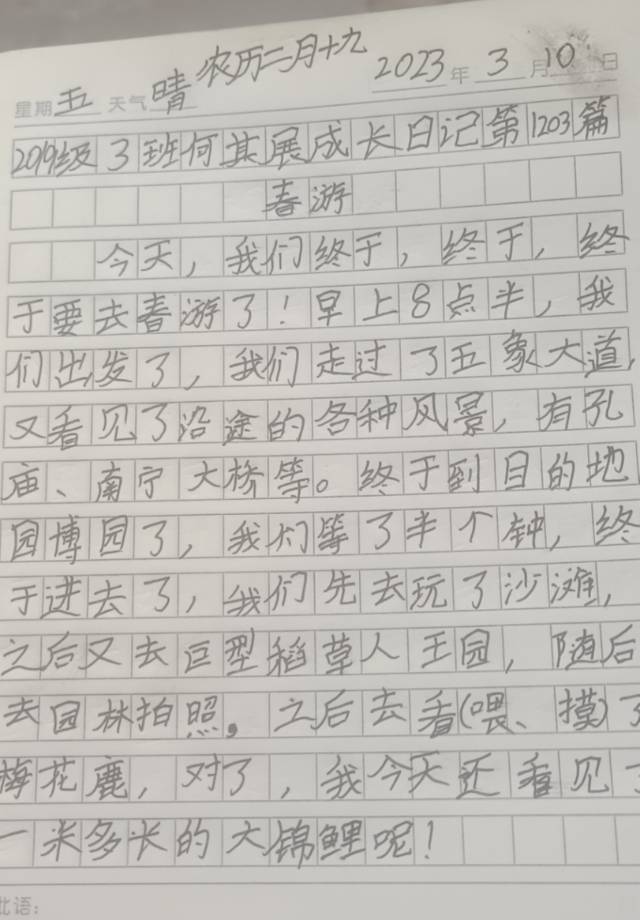 农历二月十九
星期五 天气晴 2023年3月10日
2019级3班何其展成长日记第1203篇
春游
今天，我们终于，终于，终
于要去春游了！早上8点半，我
们出发了，我们走过了五象大道，
又看见了沿途的各种风景，有孔
庙、南宁大桥等。终于到目的地
园博园了，我们等了半个钟，终
于进去了，我们先去玩了沙滩，
之后又去巨型稻草人王园，随后
去园林拍照。之后去看(喂、摸)了
梅花鹿，对了，我今天还看见了
一米多长的大锦鲤呢！
批语：